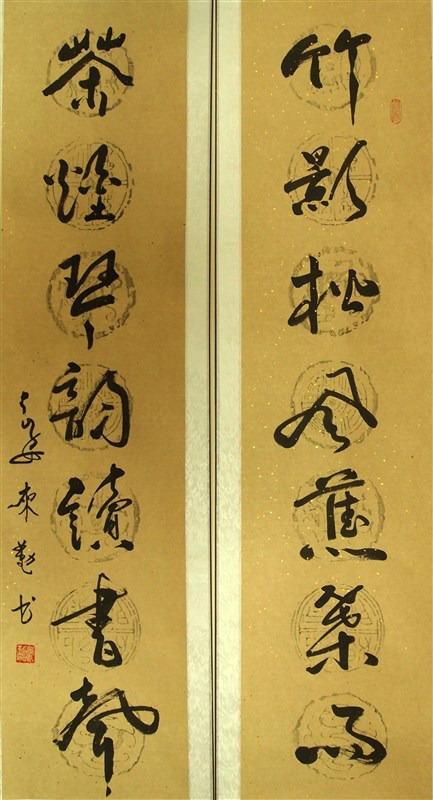 竹影松风蕉葉雨
茶煙琴韻讀書聲